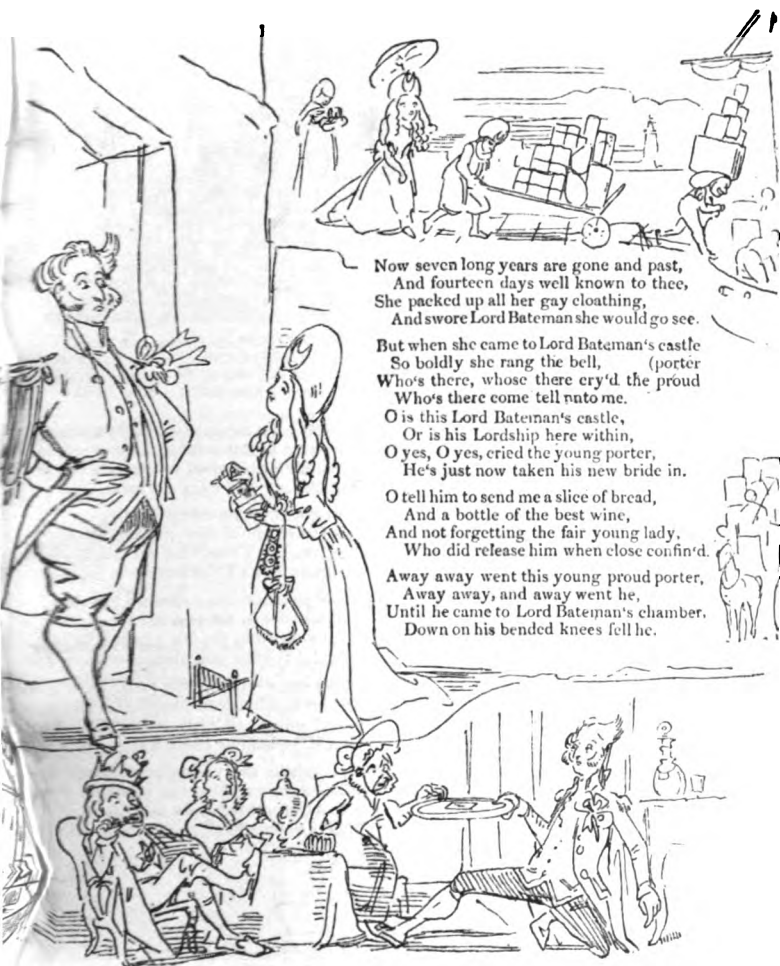 Now seven long years are gone and past,
And fourteen days well known to thee,
She packed up all her gay cloathing,
And swore Lord Bateman she would go see.
But when she came to Lord Bateman's castle
So boldly she rang the bell, (porter
Who's there, whose there cry'd the proud
Who's there come tell nnto me.
O is this Lord Bateman's castle,
Or is his Lordship here within,
O yes, O yes, cried the young porter,
He's just now taken his new bride in.
O tell him to send me a slice of bread,
And a bottle of the best wine,
And not forgetting the fair young lady,
Who did release him when close confin'd.
Away away went this young proud porter,
Away away, and away went he,
Until he came to Lord Bateman's chamber,
Down on his bended knees fell he.